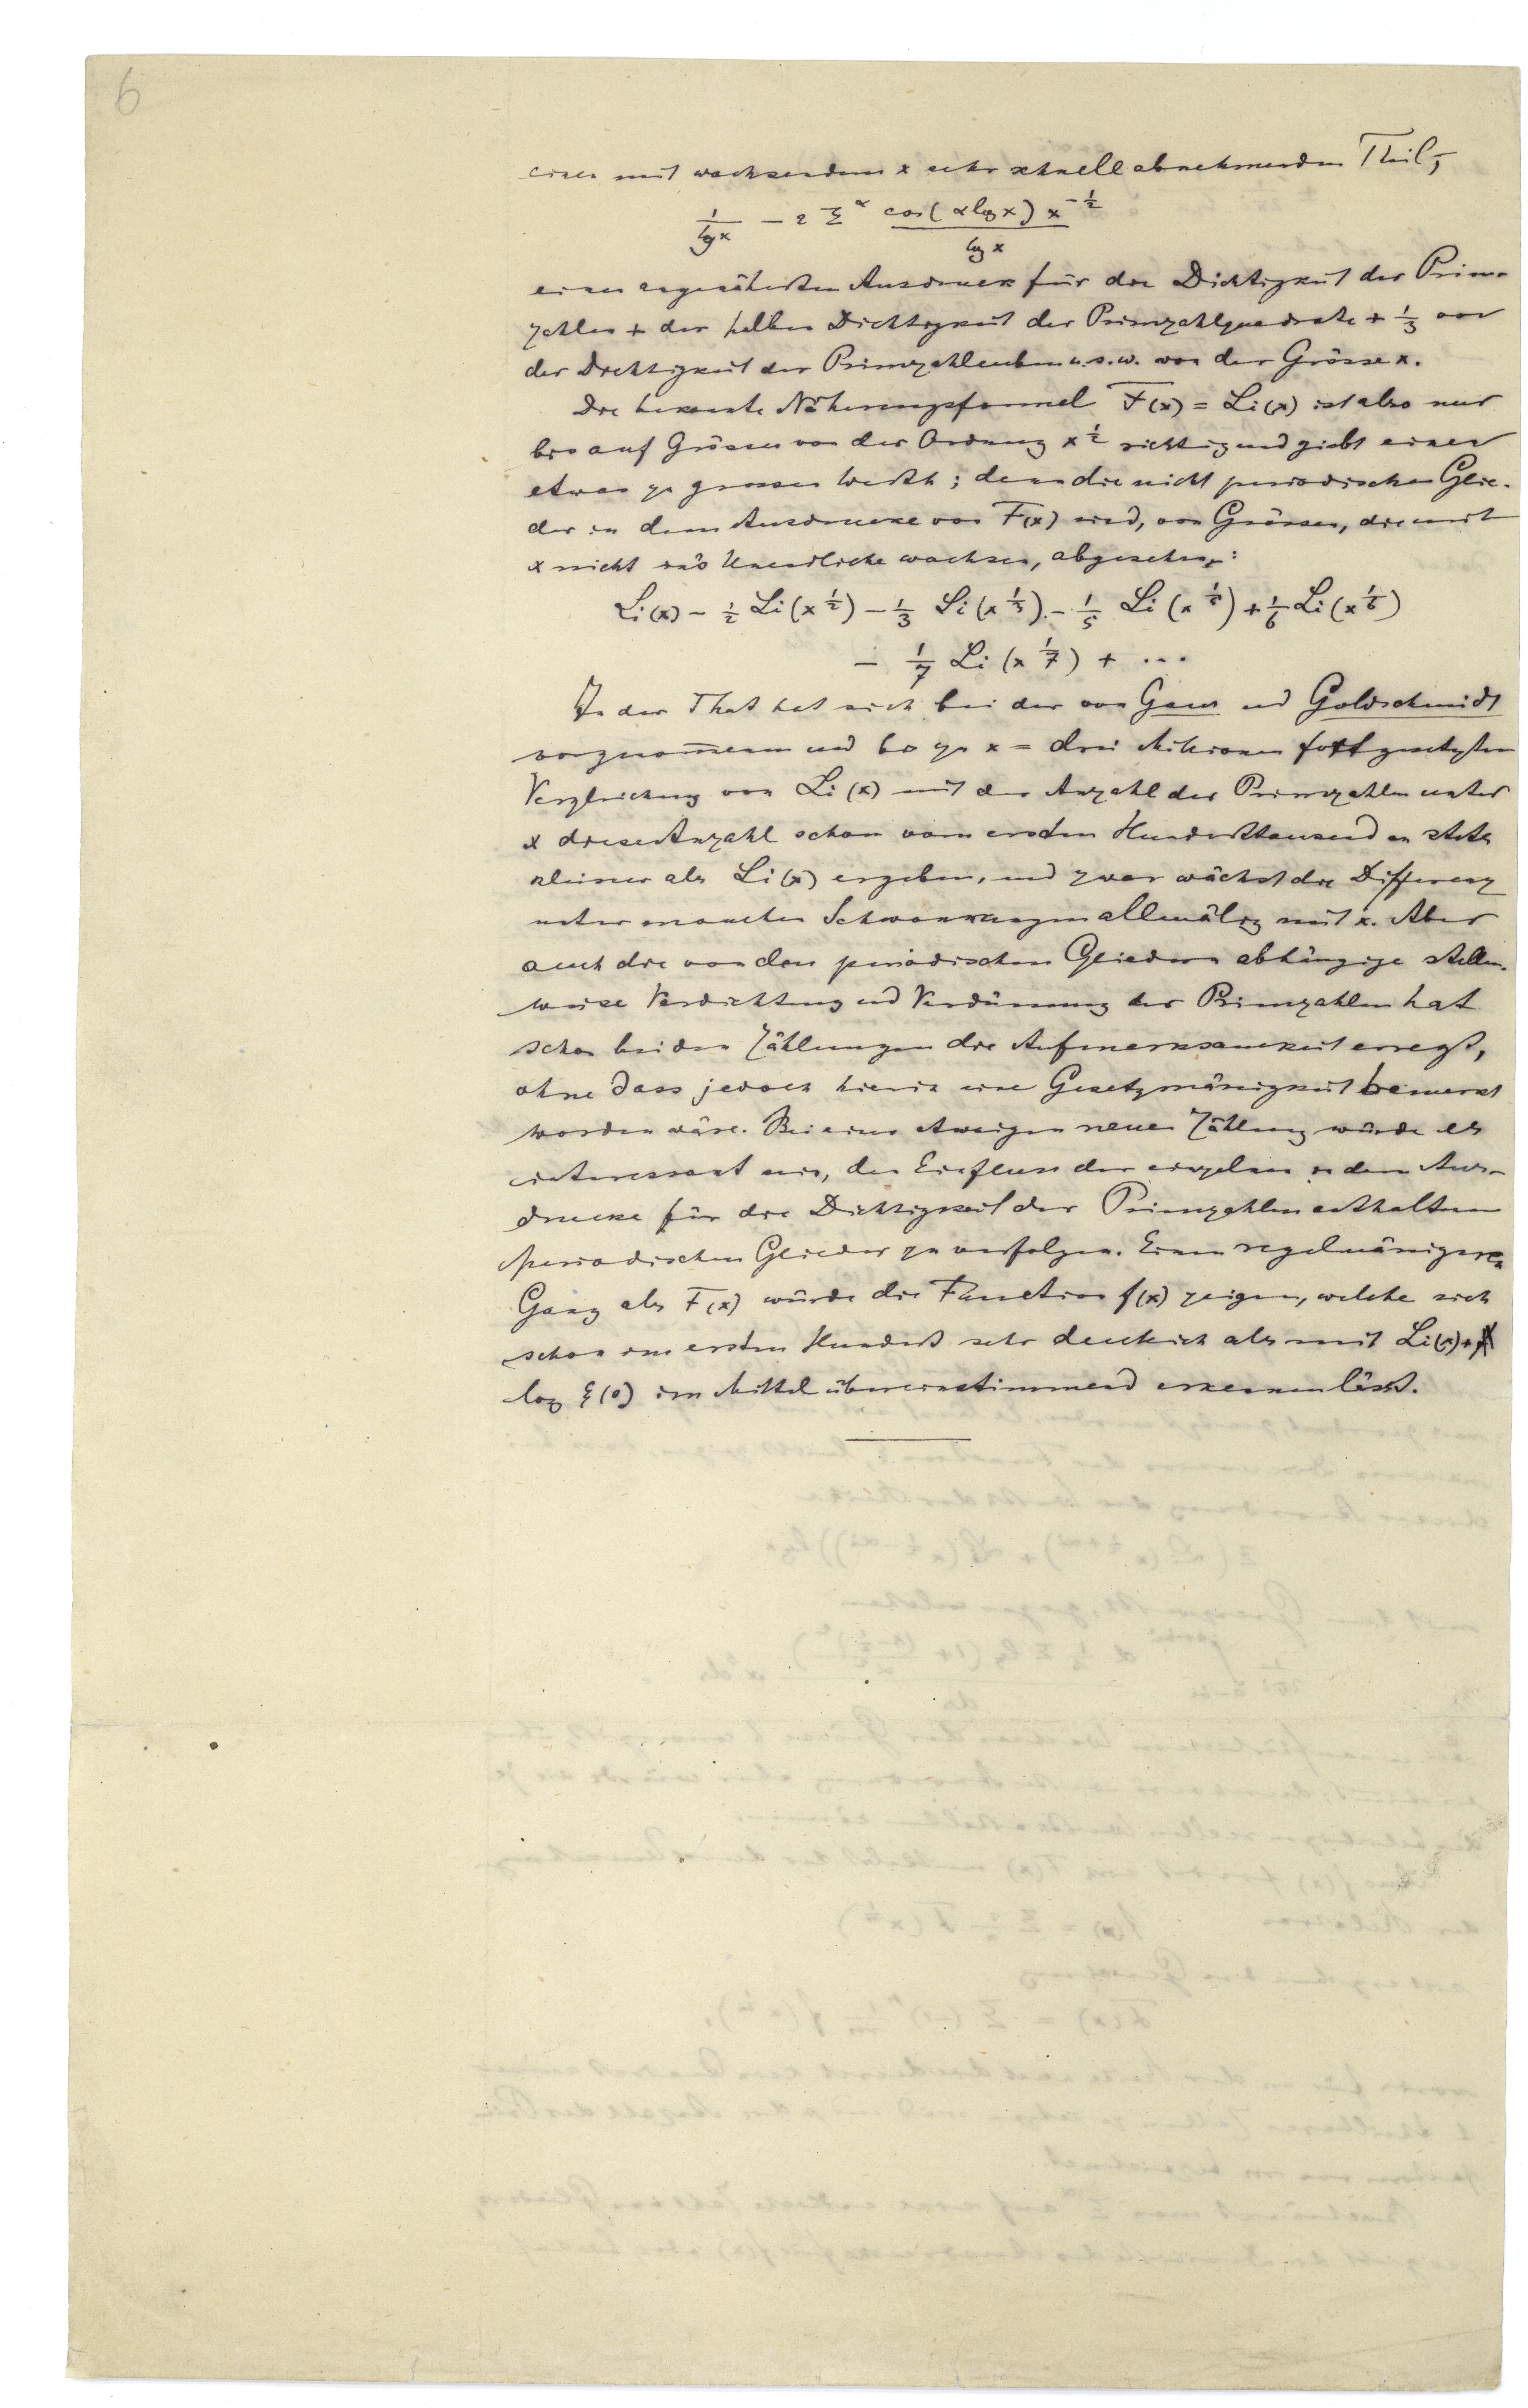 6
einen mit wachsendem x sehr schnell abnehmenden Theil,
1/lg x − 2 Σ^α cos(α lg x) x^{−1/2} / lg x
einen angenäherten Ausdruck für die Dichtigkeit der Prim-
zahlen + der halben Dichtigkeit der Primzahlquadrate + 1/3 von
der Dichtigkeit der Primzahlcuben u.s.w. von der Grösse x.
Die bekannte Näherungsformel F(x) = Li(x) ist also nur
bis auf Grössen von der Ordnung x^{1/2} richtig und giebt einen
etwas zu grossen Werth; denn die nicht periodischen Glie-
der in dem Ausdrucke von F(x) sind, von Grössen, die mit
x nicht in's Unendliche wachsen, abgesehen:
Li(x) − 1/2 Li(x^{1/2}) − 1/3 Li(x^{1/3}) − 1/5 Li(x^{1/5}) + 1/6 Li(x^{1/6})
− 1/7 Li(x^{1/7}) + ...
In der That hat sich bei der von Gauss und Goldschmidt
vorgenommenen und bis zu x = drei Millionen fortgesetzten
Vergleichung von Li(x) mit der Anzahl der Primzahlen unter
x diese Anzahl schon vom ersten Hunderttausend an stets
kleiner als Li(x) ergeben, und zwar wächst die Differenz
unter manchen Schwankungen allmälig mit x. Aber
auch die von den periodischen Gliedern abhängige stellen-
weise Verdichtung und Verdünnung der Primzahlen hat
schon bei den Zählungen die Aufmerksamkeit erregt,
ohne dass jedoch hierin eine Gesetzmässigkeit bemerkt
worden wäre. Bei einer etwaigen neuen Zählung würde es
interessant sein, den Einfluss der einzelnen in dem Aus-
drucke für die Dichtigkeit der Primzahlen enthaltenen
periodischen Glieder zu verfolgen. Einen regelmässigeren
Gang als F(x) würde die Function f(x) zeigen, welche sich
schon im ersten Hundert sehr deutlich als mit Li(x) +
log ξ(0) im Mittel übereinstimmend erkennen lässt.